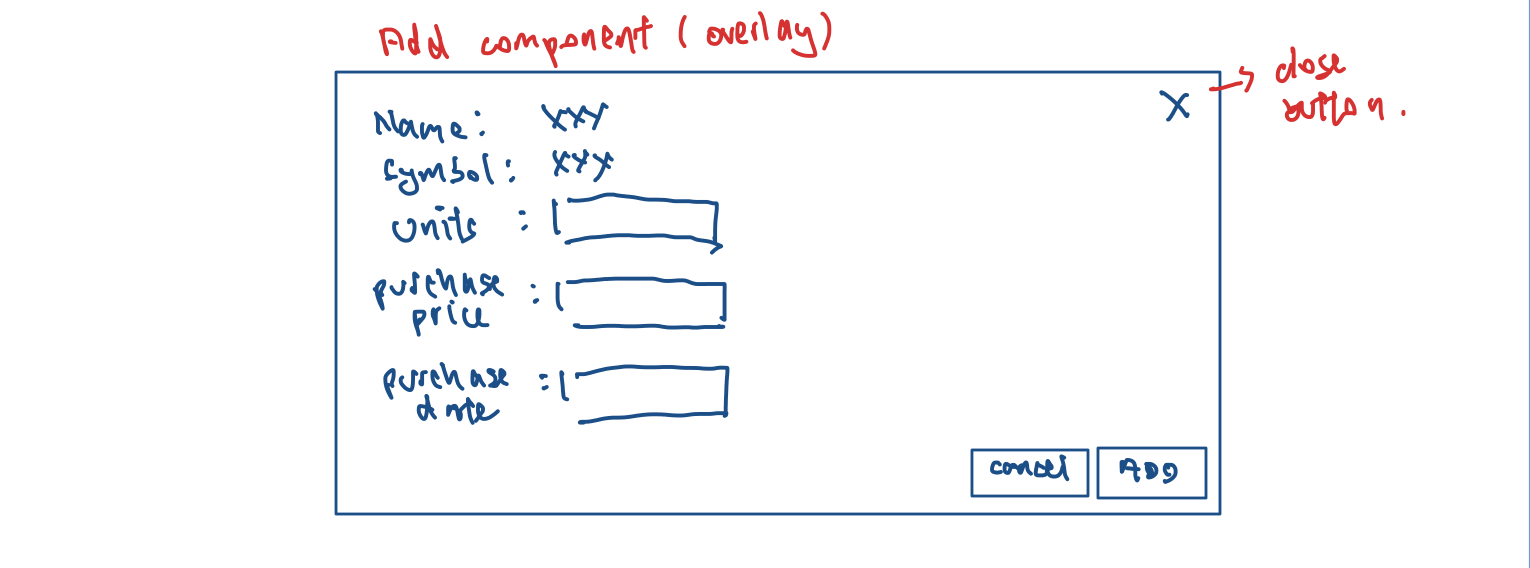 Add component (overlay)
X → close
button.
Name: XXX
Symbol: XXX
Units :
purchase :
price
purchase :
date
cancel ADD